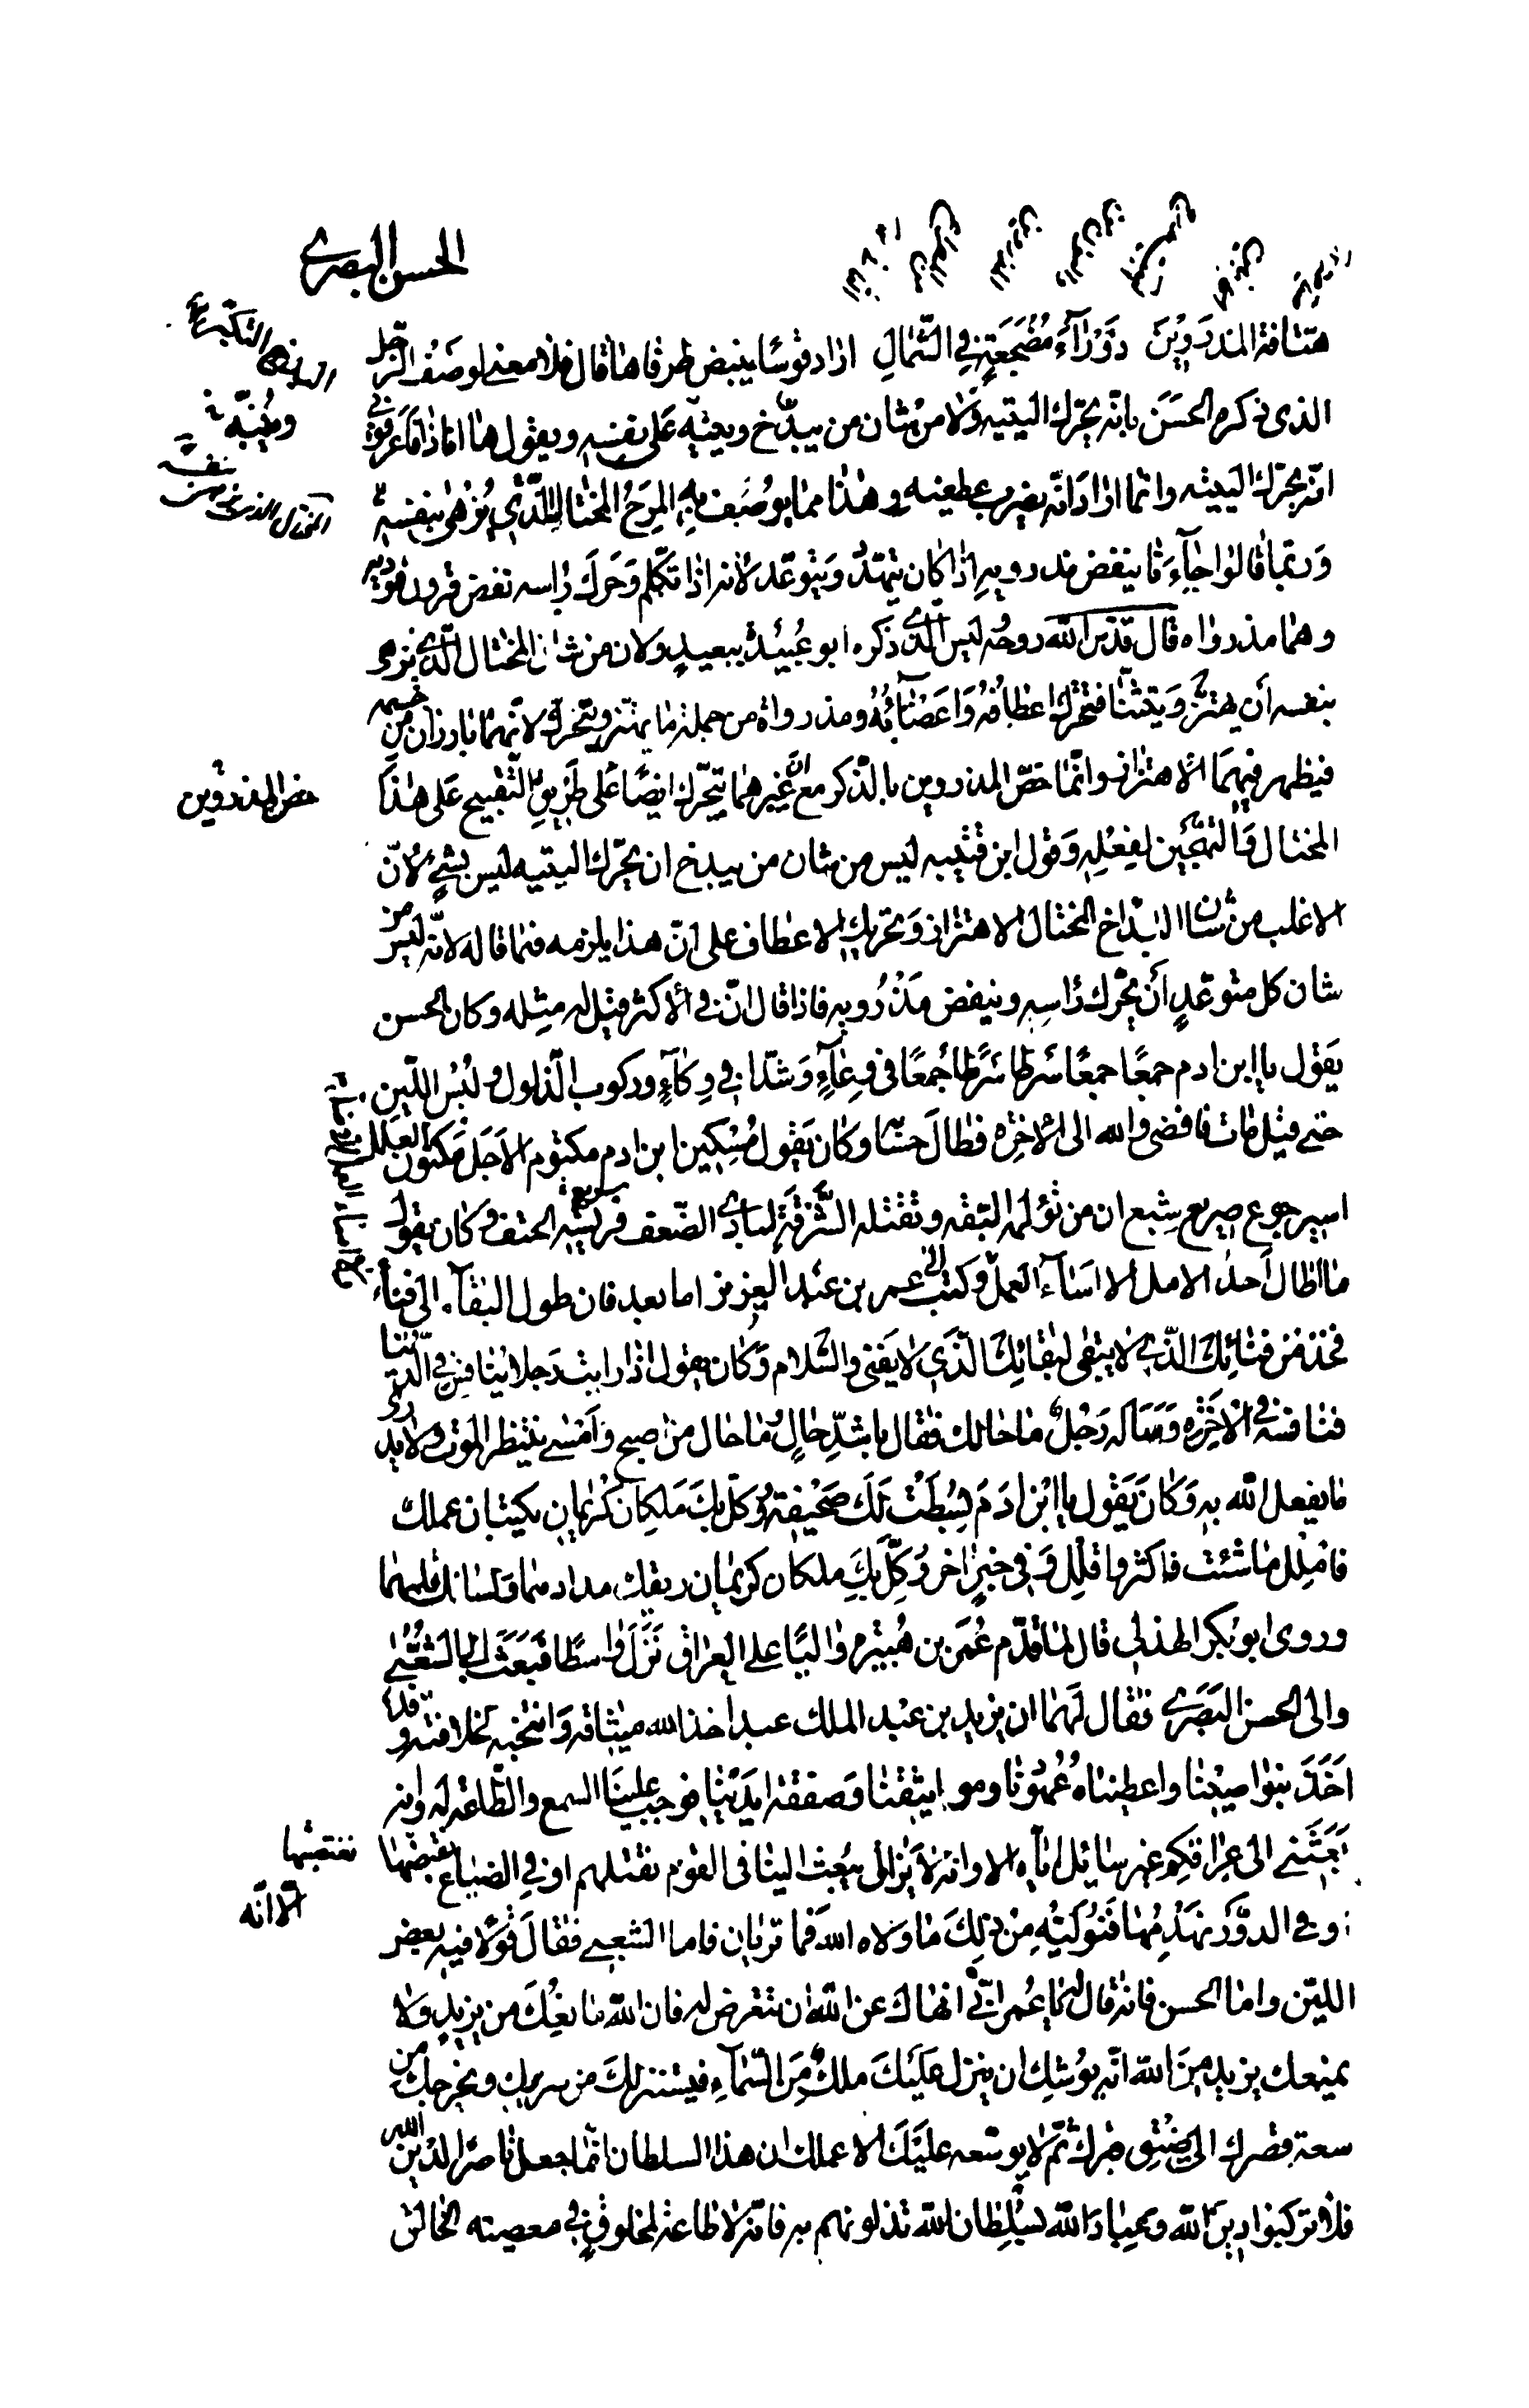 الحسن البصري
هتافة المذروين دوراء مضجعة في الشمال اراد قوسا ينبض طرفاها قال فلا معنى لوصف الرجل
الذي ذكره الحسن بانه يحرك اليتيه ولا من شان من يبذخ وينبه على نفسه ويقول ها انا ذا فاعرفوني
انه يحرك اليتيه وانما اراد انه يضرب عطفيه وهذا مما يوصف به المرح المختال الذي يزهى بنفسه
وربما قالوا جاء فا ينفض مذرويه اذا كان يتهدد ويتوعد لانه اذا تكلم وحرك راسه نفض قرون فوديه
وهما مذرواه قال قدس الله روحه ليس الذي ذكره ابو عبيدة ببعيد ولان من شان المختال الذي يزهى
بنفسه ان يهتز ويتثنا فتتحرك اعطافه واعضاؤه ومذرواه من جملة ما يهتز ويتحرك لانهما بارزان من جسمه
فيظهر فيهما الاهتزاز وانما خص المذروين بالذكر مع ان غيرهما يتحرك ايضا على طريق التقبيح على هذا
خص المذروين
المختال والتهجين لفعله وقول ابن قتيبه ليس من شان من يبذخ ان يحرك اليتيه ليس بشيء لان
الاغلب من شان البذاخ المختال الاهتزاز وتحريك الاعطاف على ان هذا يلزمه فيما قاله لانه ليس من
شان كل متوعد ان يحرك راسه وينفض مذرويه فاذا قال ان في الاكثر قيل له مثله وكان الحسن
يقول يا ابن ادم جمعا جمعا سرطا سرطا جمعا في وعاء وشدا في وكاء وركوب الذلول ولبس اللين
حتى قيل مات فافضى والله الى الاخرة فطال حسابه وكان يقول مسكين ابن ادم مكتوم الاجل مكنون العلل
اسير جوع صريع شبع ان من تؤلمه البقه وتقتله الشرقة لبادي الضعف فريسه الحتف وكان يقول
ما اطال احد الامل الا اساء العمل وكتب الى عمر بن عبد العزيز اما بعد فان طول البقاء الى فناء
فخذ من فنائك الذي لا يبقى لبقائك الذي لا يفنى والسلام وكان يقول اذا رايت رجلا ينافس في الدنيا
فنافسه في الاخرة وساله رجل ما حالك فقال باشد حال ما حال من اصبح وامسى ينتظر الموت ولا يدري
ما يفعل الله به وكان يقول يا ابن ادم بسطت لك صحيفة ووكل بك ملكان كريمان يكتبان عملك
فاملل ما شئت فاكثر او اقلل وفي خبر اخر وكل بك ملكان كريمان ريقك مدادهما ولسانك قلمهما
وروى ابو بكر الهذلي قال لما قدم عمر بن هبيره واليا على العراق نزل واسطا فبعث الى الشعبي
والى الحسن البصري فقال لهما ان يزيد بن عبد الملك عبد اخذ الله ميثاقه وانتخبه لخلافته وقد
اخذ بنواصينا واعطيناه عهودنا ومواثيقنا وصفقة ايدينا فوجب علينا السمع والطاعة له وانه
بعثني الى عراقكم غير سائل اياه الا وانه لا يزال يبعث الينا في القوم نقتلهم او في الضياع نقبضها
نقتضبها
الا انه
او في الدور نهدمها فنوليه من ذلك ما ولاه الله فما تريان فاما الشعبي فقال قولا فيه بعض
اللين واما الحسن فانه قال له يا عمر اني انهاك عن الله ان تتعرض له فان الله مانعك من يزيد ولا
يمنعك يزيد من الله انه يوشك ان ينزل عليك ملك من السماء فيستنزلك من سريرك ويخرجك من
سعة قصرك الى ضيق قبرك ثم لا يوسعه عليك الا عملك ان هذا السلطان انما جعل ناصرا لدين الله
فلا تركبوا دين الله وعباد الله بسلطان الله تذلونهم به فانه لا طاعة لمخلوق في معصيته الخالق